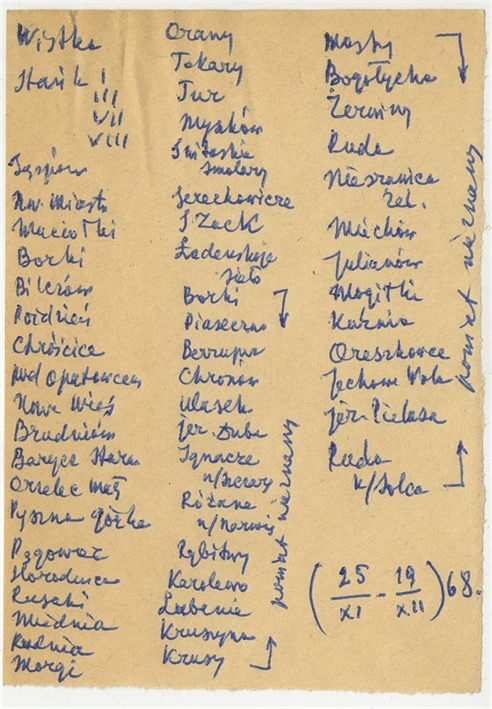 Wistka
Hańk I
III
VII
VIII
Nw. Miasto
Maciołki
Borki
Bilczów
Poździeń
Chróścice
pod Opatowcem
Nowa Wieś
Brudniów
Barycz Stara
Orzelec mał
Pyszna Górka
Horadnica
Rusaki
Miednia
Rudnia
Morgi
Orany
Tokary
Tur
Myszków
Świtaskie
Smolary
Serechowicze
J. Zack
Ladenskoje
sioło
Borki
Piaseczno
Chronów
Ulasek
jer. Duba
Ignacze
Różana
n/Narwią
Rybitwy
Karolewo
Lubenia
Kruszyna
Krusy
punkt nieznany
Mosty
Żerwiny
Ruda
Niezranica
Żel.
Miechów
Julianów
Mogiłki
Kuźnia
Oreszkowce
jer. Pielasa
Ruda
n/Solca
punkt nieznany
(25/XI - 19/XII) 68.